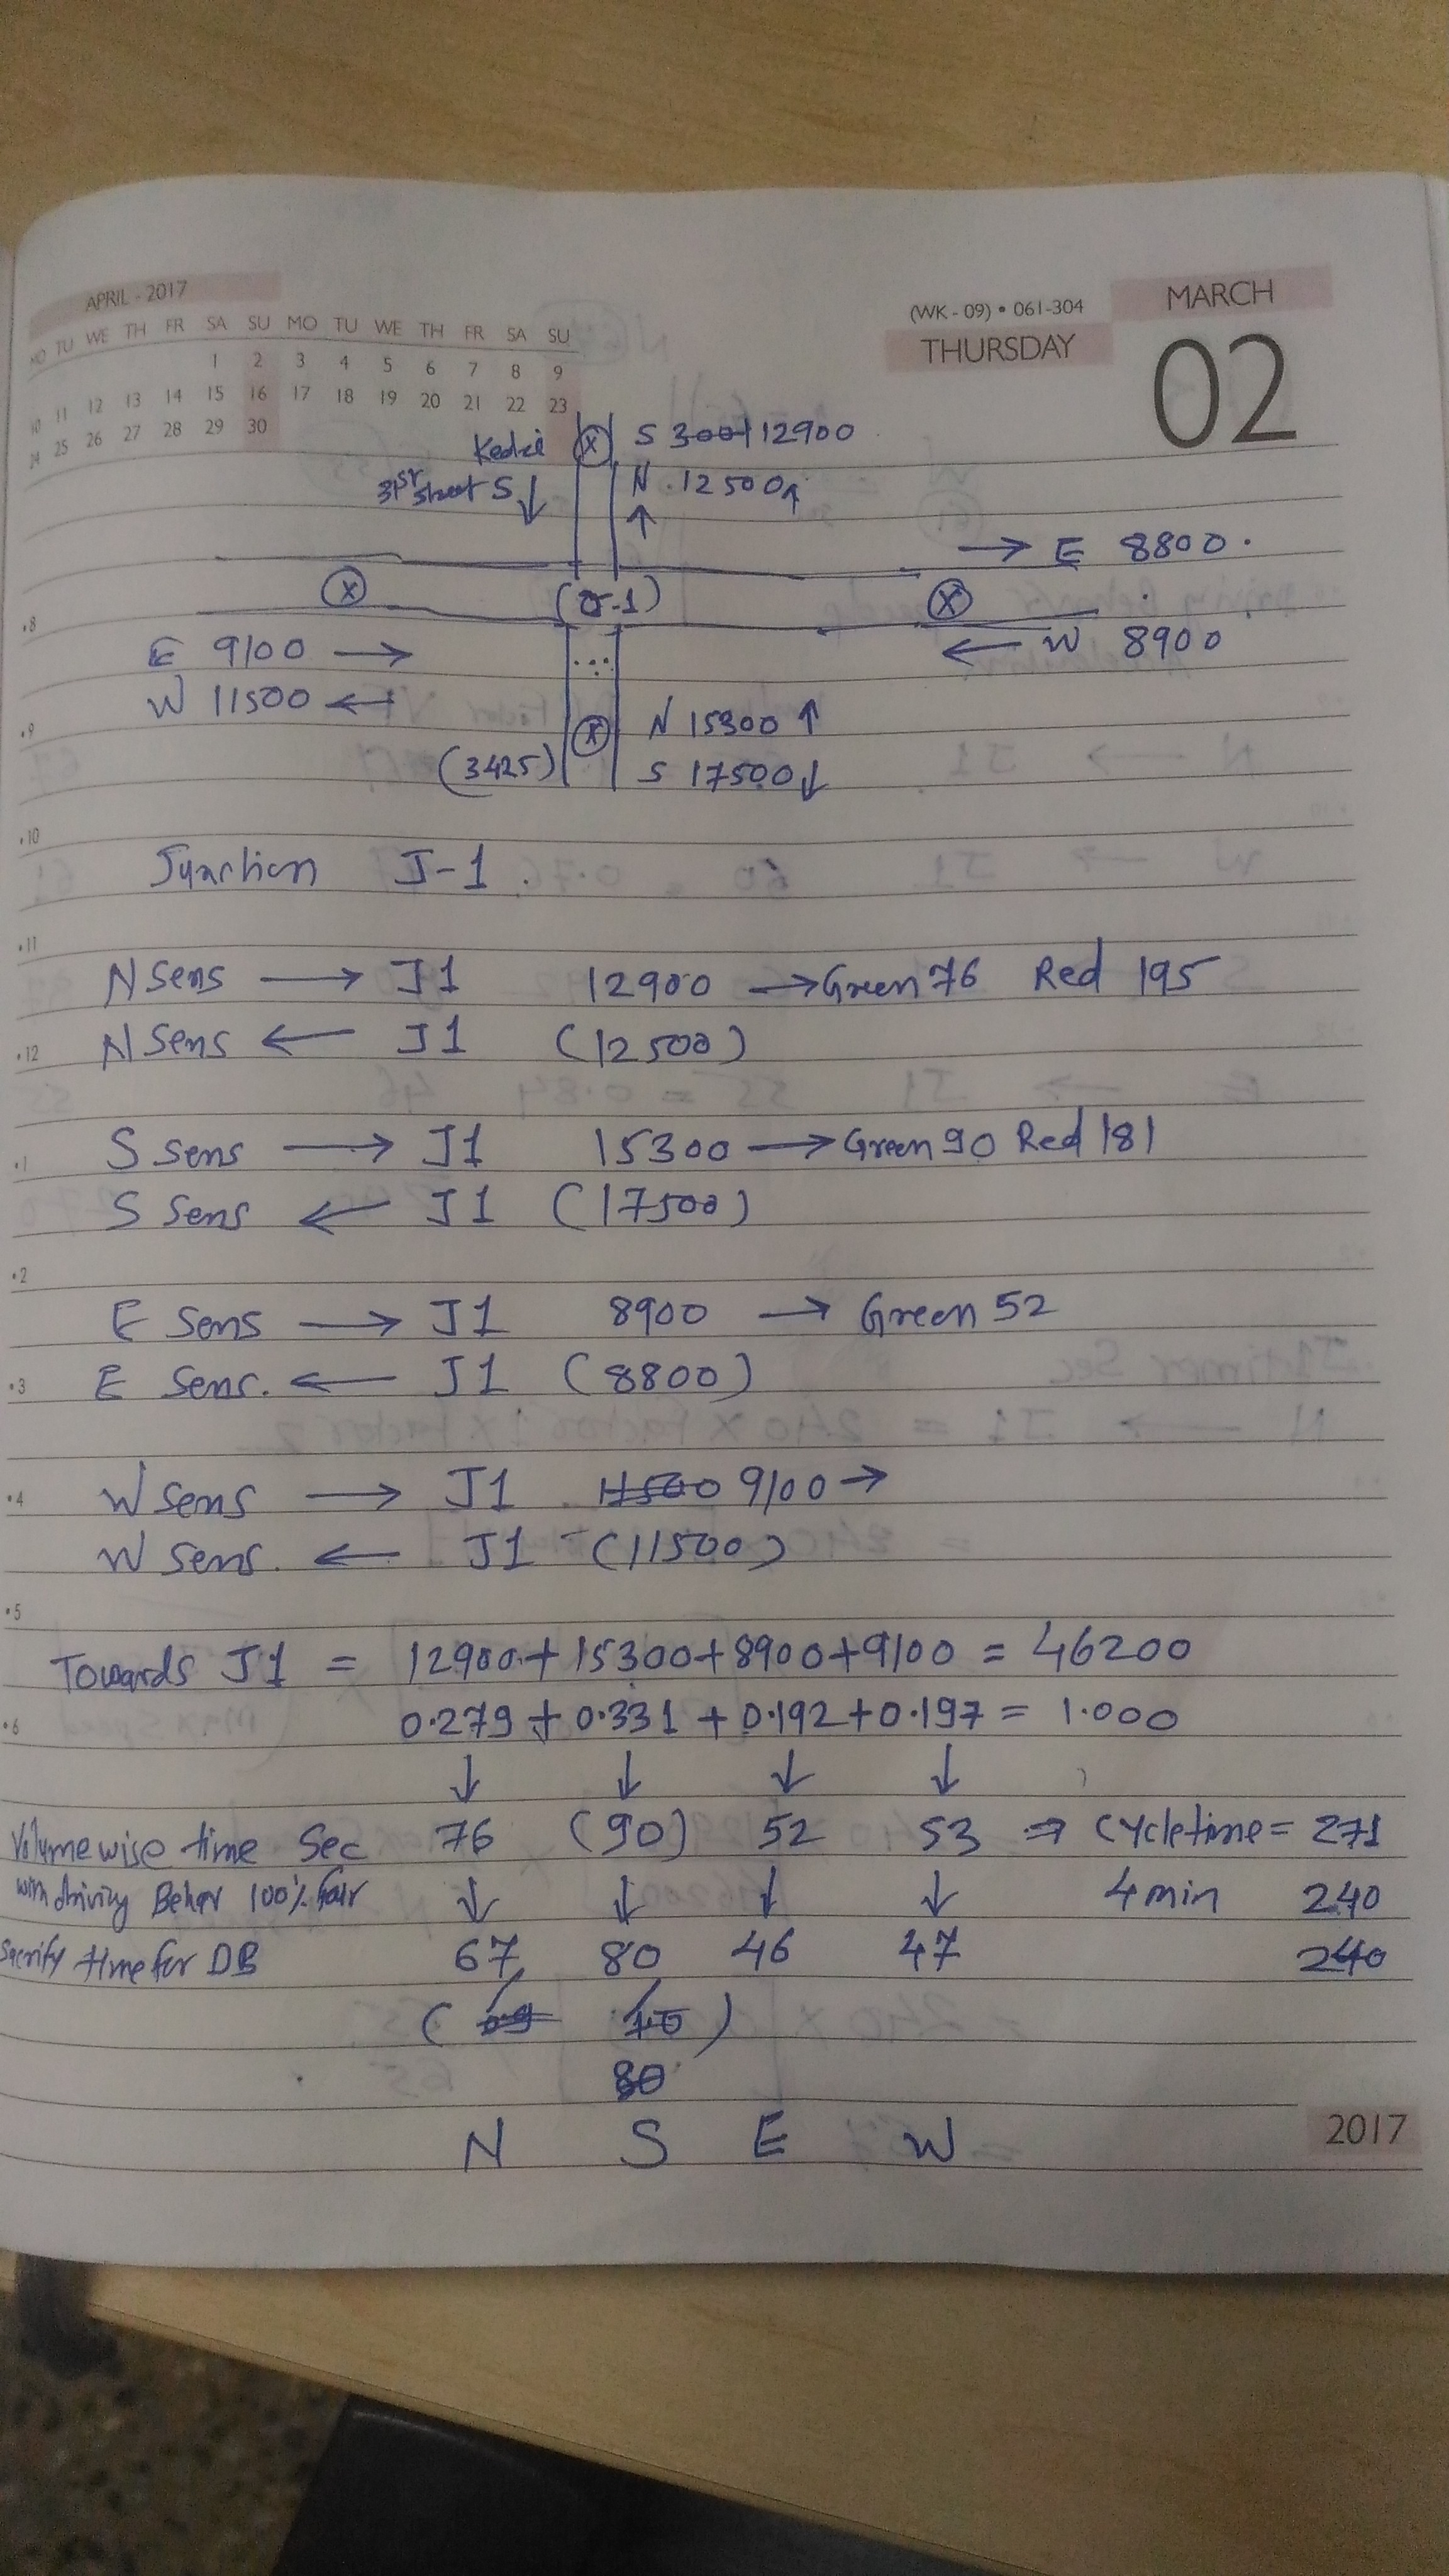 APRIL - 2017
MO TU WE TH FR SA SU MO TU WE TH FR SA SU
1 2 3 4 5 6 7 8 9
10 11 12 13 14 15 16 17 18 19 20 21 22 23
24 25 26 27 28 29 30
(WK - 09) • 061-304
THURSDAY
MARCH
02
Kedzie S 12900
31st street S ↓ N . 12500 ↑
↑
→ E 8800 .
(J-1)
E 9100 →
W 11500 ←
← W 8900
N 15300 ↑
(3425) S 17500 ↓
Junction J-1 .
N Sens → J1 12900 → Green 76 Red 195
N Sens ← J1 (12500)
S Sens → J1 15300 → Green 90 Red 181
S Sens ← J1 (17500)
E Sens → J1 8900 → Green 52
E Sens. ← J1 (8800)
W Sens → J1 . 11500 9100 →
W Sens. ← J1 - (11500)
Towards J1 = 12900 + 15300 + 8900 + 9100 = 46200
0.279 + 0.331 + 0.192 + 0.197 = 1.000
↓ ↓ ↓ ↓
Volumewise time Sec 76 (90) 52 53 ⇒ Cycletime = 271
with driving Behav 100% fair ↓ ↓ ↓ ↓ 4 min 240
time for DB 67 80 46 47 240
( )
80
N S E W
2017
.8
.9
.10
.11
.12
.1
.2
.3
.4
.5
.6